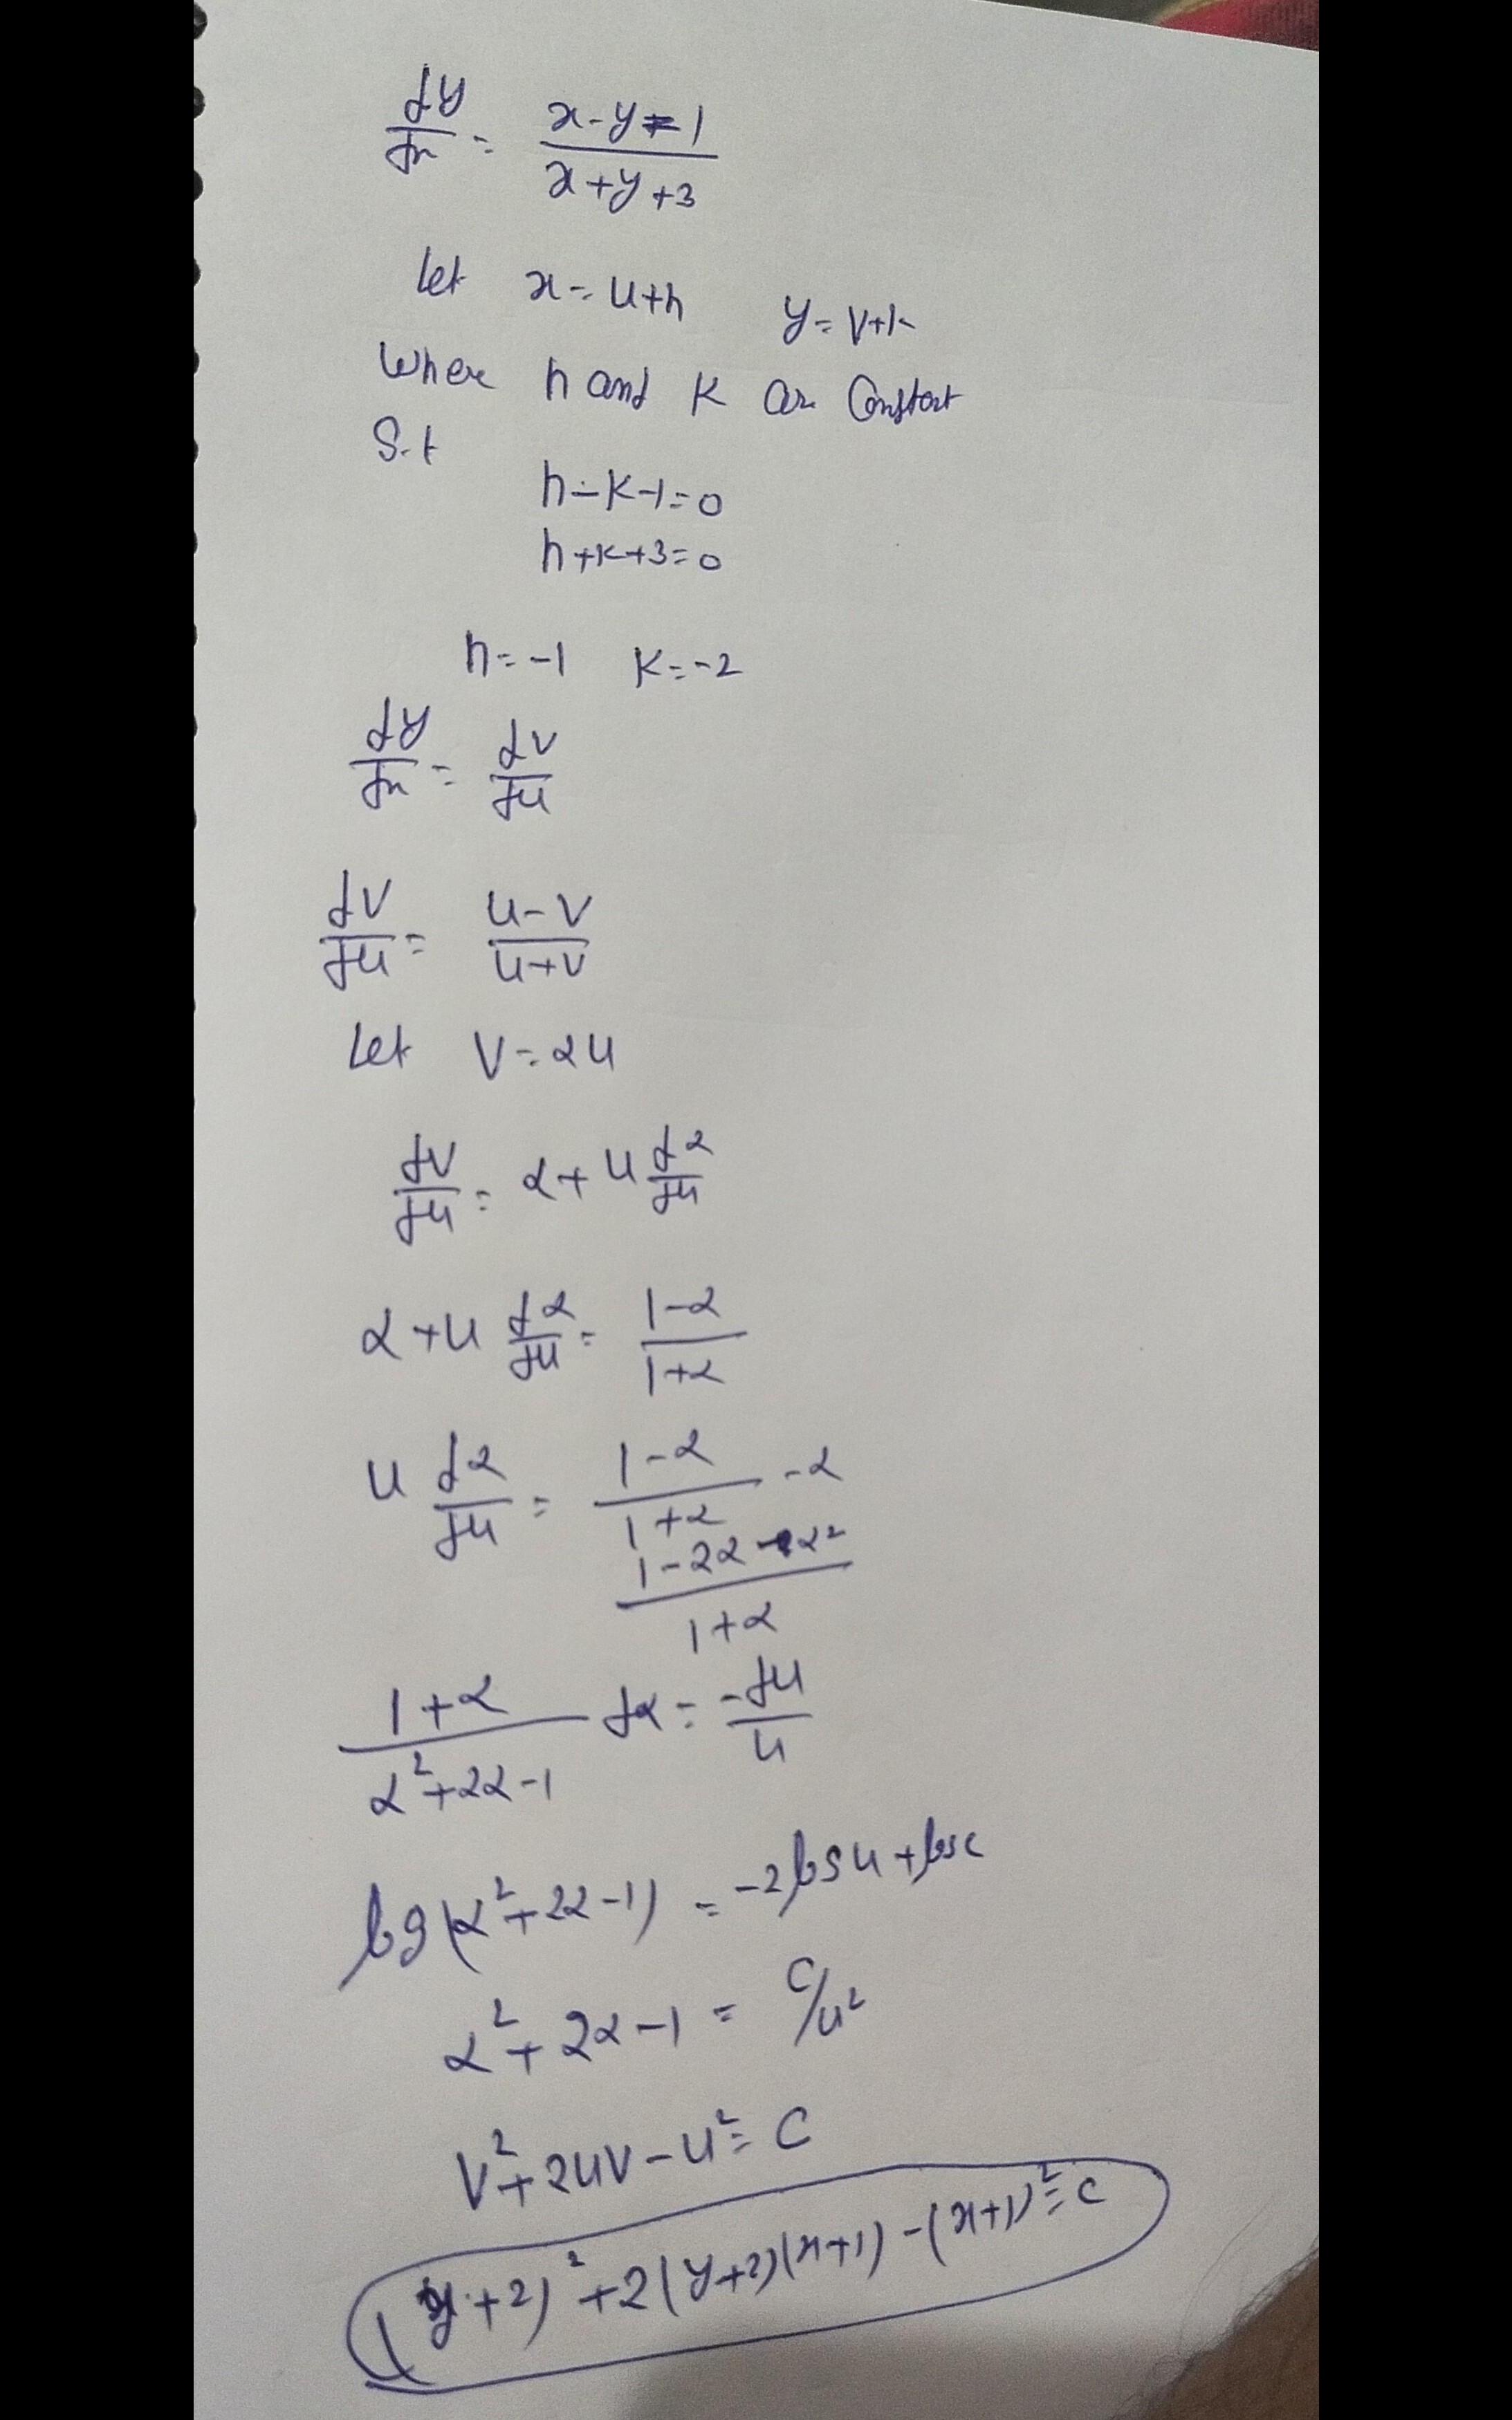 dy/dx = (x-y-1)/(x+y+3)
Let x = u+h y = v+k
Where h and k are Constant
S.t
h-k-1=0
h+k+3=0
h=-1 k=-2
dy/dx = dv/du
dv/du = (u-v)/(u+v)
Let v=αu
dv/du = α+u dα/du
α+u dα/du = (1-α)/(1+α)
u dα/du = (1-α)/(1+α) -α
(1-2α-α²)/(1+α)
(1+α)/(α²+2α-1) dα = -du/u
log(α²+2α-1) = -2logu+logc
α²+2α-1 = c/u²
v²+2uv-u²=c
(y+2)²+2(y+2)(x+1)-(x+1)²=c